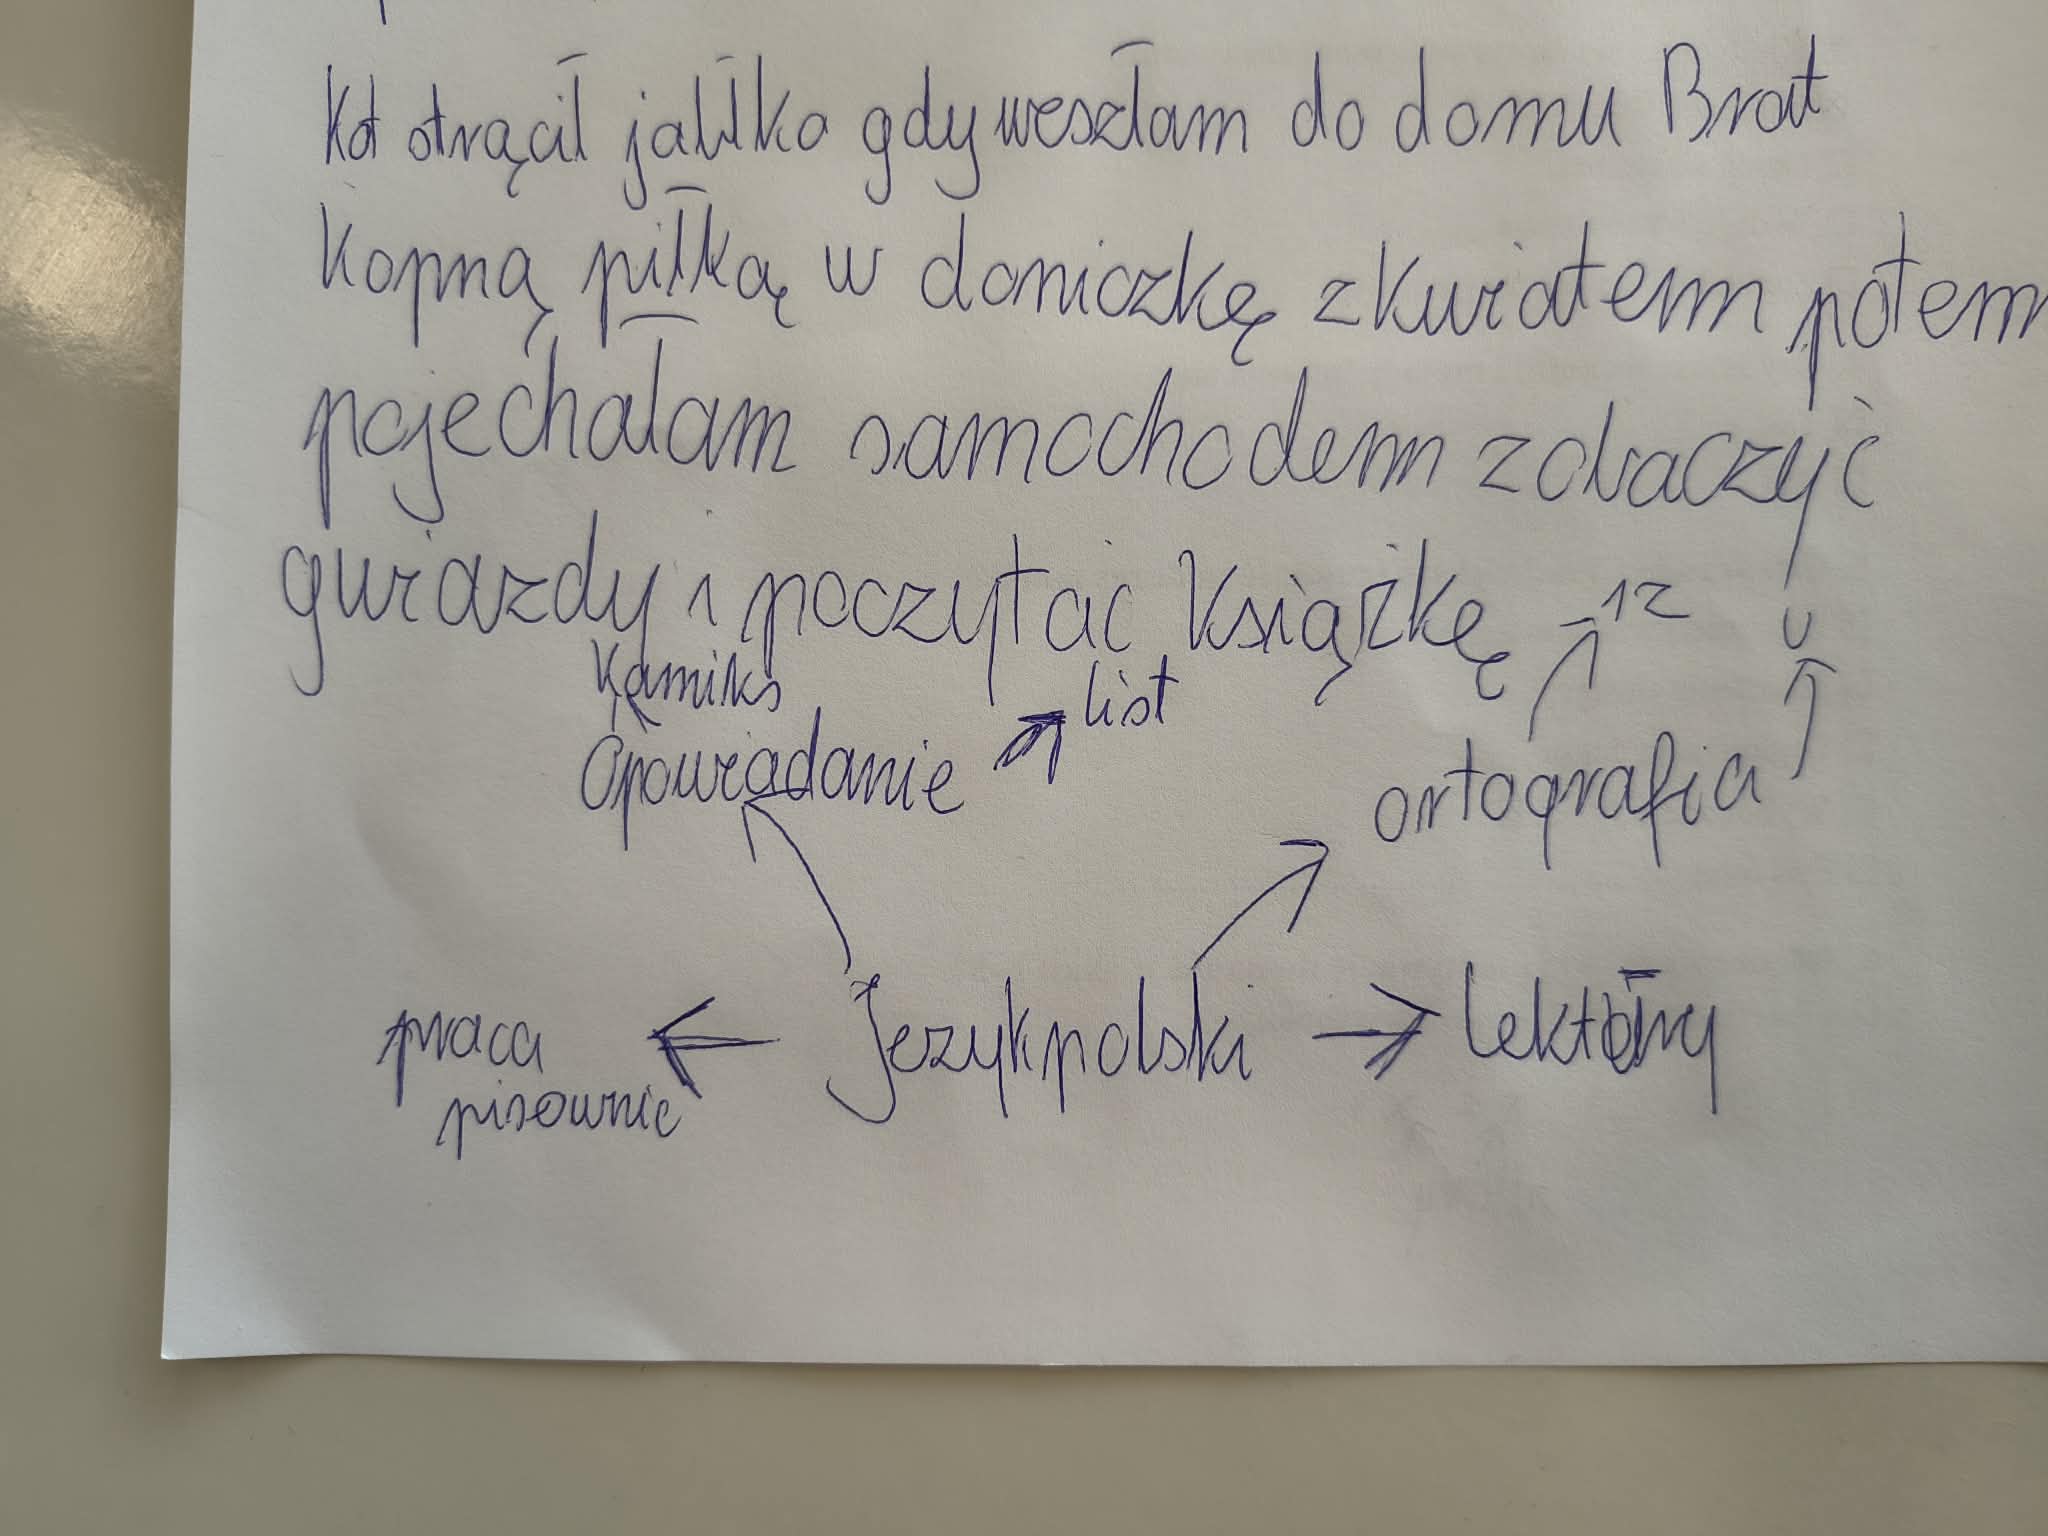 Kot otrącił jabłko gdy weszłam do domu Brat
Kopną piłką w doniczkę z kwiatem potem
pojechałam samochodem zobaczyć
gwiazdy i poczytać Książkę
rz
u
Komiks
list
Opowiadanie
ortografia
praca
pisownie
Język polski
lektóry